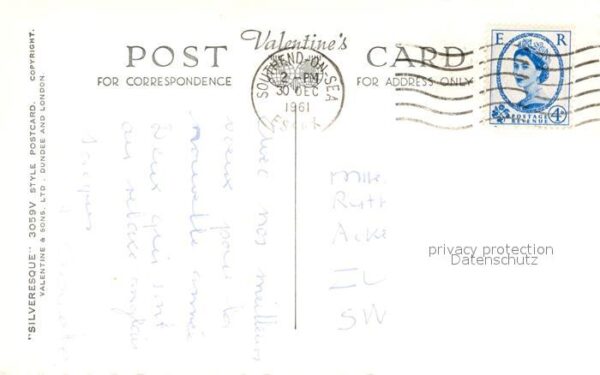 Valentine's
POST CARD
FOR CORRESPONDENCE
FOR ADDRESS ONLY
"SILVERESQUE" 3059V STYLE POSTCARD. COPYRIGHT.
VALENTINE & SONS. LTD. DUNDEE AND LONDON.
SOUTHEND-ON-SEA
2 - PM
30 DEC
1961
ESSEX
E R
POSTAGE
REVENUE
4D
Avec nos meilleurs
vœux pour la
nouvelle année
Deux qui sont
au relax anglais
Jacques
Mlle
Ruth
Acke
SW
privacy protection
Datenschutz